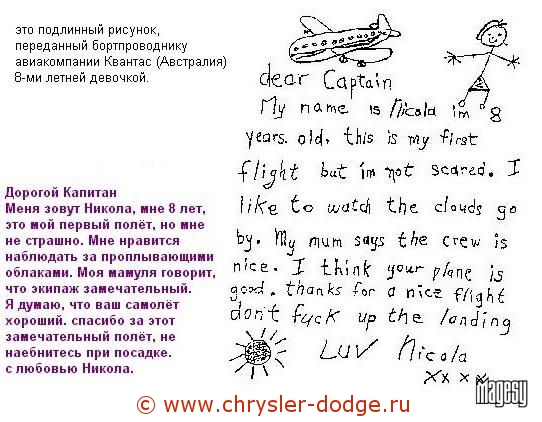 это подлинный рисунок,
переданный бортпроводнику
авиакомпании Квантас (Австралия)
8-ми летней девочкой.
dear Captain
My name is Nicola im 8
years. old, this is my first
flight but im not scared. I
like to watch the clouds go
by. My mum says the crew is
nice. I think your plane is
good. thanks for a nice flight
don't fuck up the landing
LUV Nicola
xxxx
Дорогой Капитан
Меня зовут Никола, мне 8 лет,
это мой первый полёт, но мне
не страшно. Мне нравится
наблюдать за проплывающими
облаками. Моя мамуля говорит,
что экипаж замечательный.
Я думаю, что ваш самолёт
хороший. спасибо за этот
замечательный полёт, не
наебнитесь при посадке.
с любовью Никола.
magesy
© www.chrysler-dodge.ru